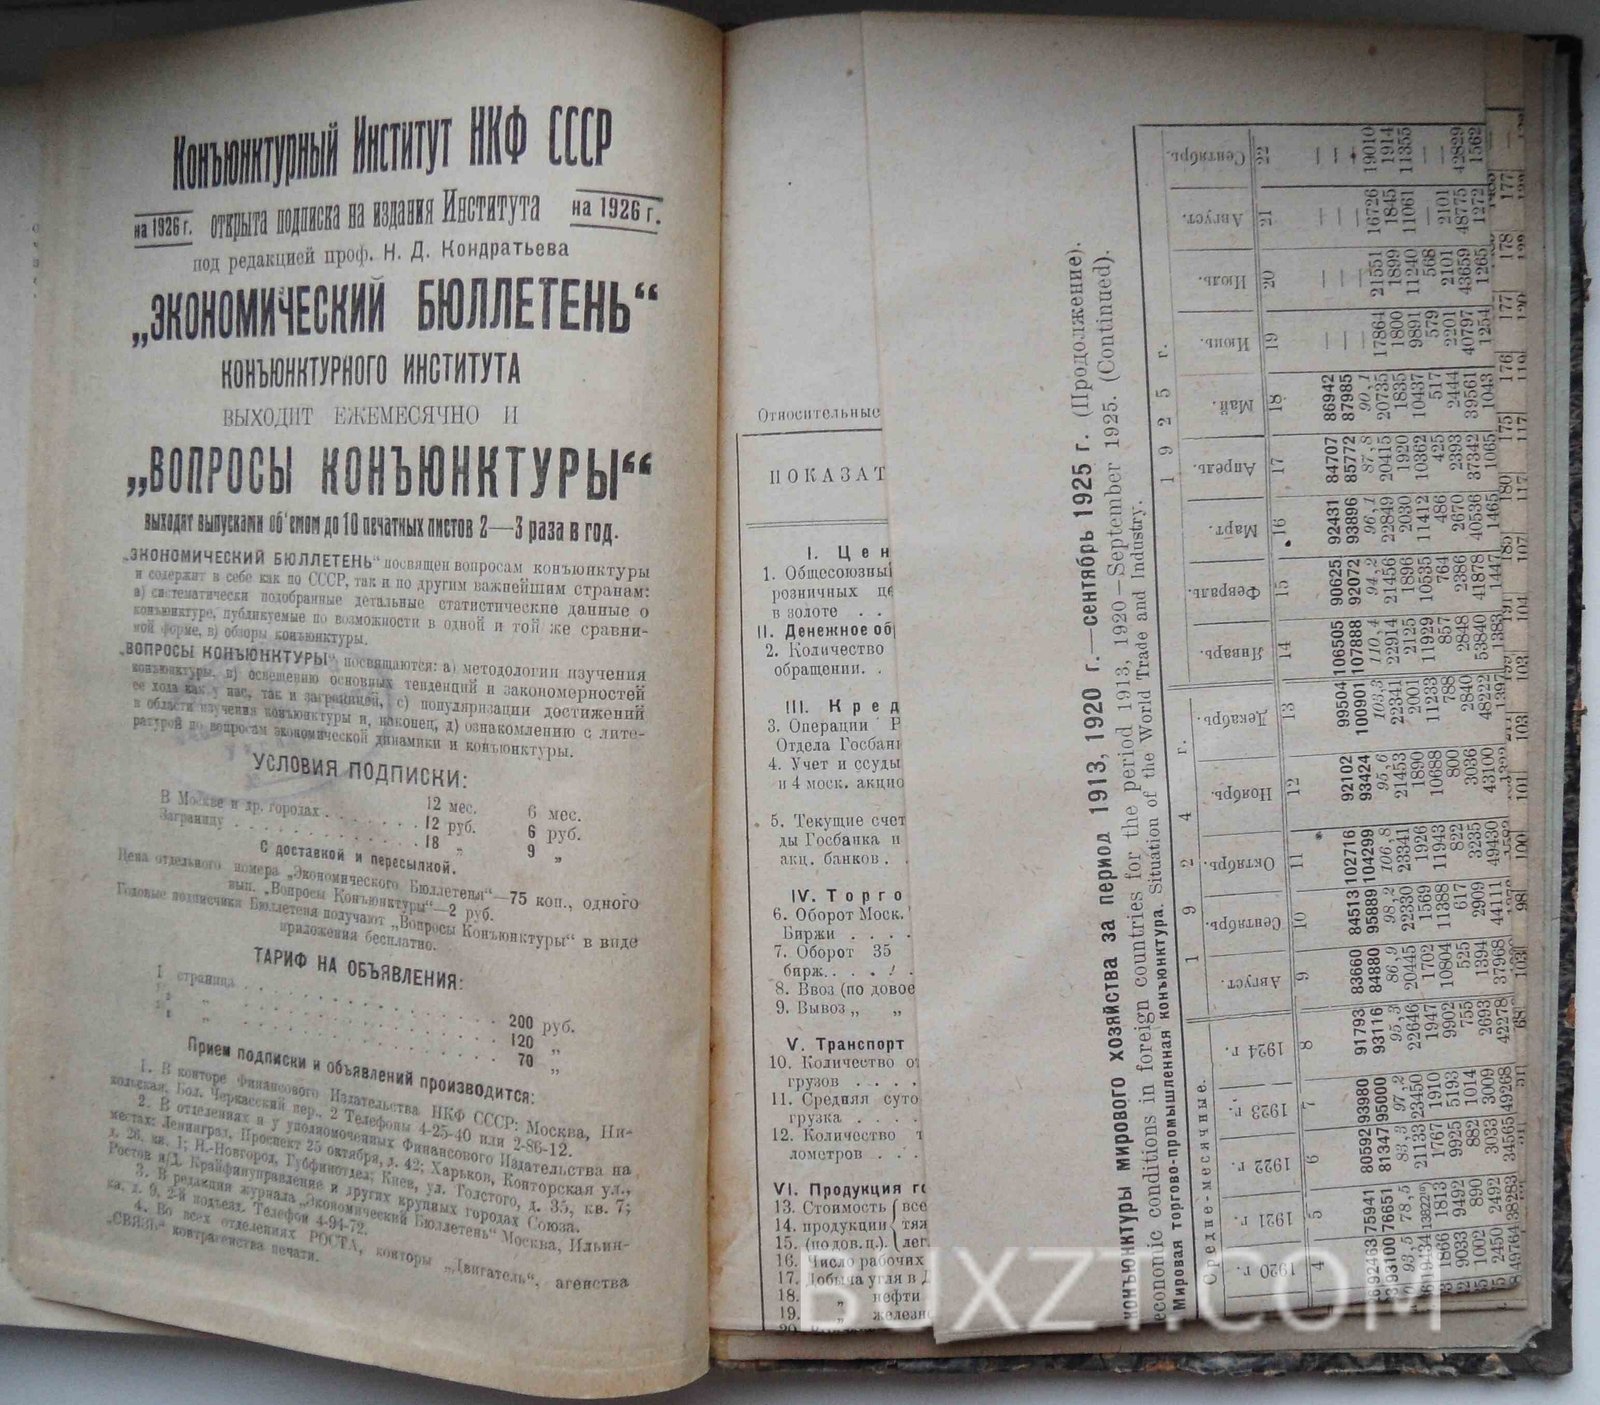 Конъюнктурный Институт НКФ СССР
на 1926 г. открыта подписка на издания Института на 1926 г.
под редакцией проф. Н. Д. Кондратьева
„ЭКОНОМИЧЕСКИЙ БЮЛЛЕТЕНЬ“
КОНЪЮНКТУРНОГО ИНСТИТУТА
ВЫХОДИТ ЕЖЕМЕСЯЧНО И
„ВОПРОСЫ КОНЪЮНКТУРЫ“
выходят выпусками об'емом до 10 печатных листов 2—3 раза в год.
„ЭКОНОМИЧЕСКИЙ БЮЛЛЕТЕНЬ“ посвящен вопросам конъюнктуры
и содержит в себе как по СССР, так и по другим важнейшим странам:
а) систематически подобранные детальные статистические данные о
конъюнктуре, публикуемые по возможности в одной и той же сравни-
мой форме, в) обзоры конъюнктуры.
„ВОПРОСЫ КОНЪЮНКТУРЫ“ посвящаются: а) методологии изучения
конъюнктуры, в) освещению основных тенденций и закономерностей
ее хода как у нас, так и заграницей, с) популяризации достижений
в области изучения конъюнктуры и, наконец, д) ознакомлению с лите-
ратурой по вопросам экономической динамики и конъюнктуры.
УСЛОВИЯ ПОДПИСКИ:
12 мес. 6 мес.
В Москве и др. городах . . . . . . . 12 руб. 6 руб.
Заграницу . . . . . . . . . . . 18 „ 9 „
С доставкой и пересылкой.
Цена отдельного номера „Экономического Бюллетеня“—75 коп., одного
вып. „Вопросы Конъюнктуры“—2 руб.
Годовые подписчики Бюллетеня получают „Вопросы Конъюнктуры“ в виде
приложения бесплатно.
ТАРИФ НА ОБЪЯВЛЕНИЯ:
1 страница . . . . . . . . . . . 200 руб.
„ . . . . . . . . . . . 120 „
„ . . . . . . . . . . . 70 „
Прием подписки и объявлений производится:
1. В конторе Финансового Издательства НКФ СССР: Москва, Ни-
кольская, Бол. Черкасский пер., 2 Телефоны 4-25-40 или 2-86-12.
2. В отделениях и у уполномоченных Финансового Издательства на
местах: Ленинград, Проспект 25 октября, д. 42; Харьков, Конторская ул.,
д. 26, кв. 1; Н.-Новгород, Губфинотдел; Киев, ул. Толстого, д. 35, кв. 7;
Ростов н/Д. Крайфинуправление и других крупных городах Союза.
3. В редакции журнала „Экономический Бюллетень“ Москва, Ильин-
ка, д. 9, 2-й подъезд. Телефон 4-94-72.
4. Во всех отделениях РОСТА, конторы „Двигатель“, агенства
„СВЯЗЬ“ контрагенства печати.
Относительные
ПОКАЗАТ
I. Цен
1. Общесоюзны
розничных це
в золоте . .
II. Денежное об
2. Количество
обращении. .
III. Кред
3. Операции
Отдела Госбан
4. Учет и ссуды
и 4 моск. акцио
5. Текущие счет
ды Госбанка и
акц. банков. .
IV. Торго
6. Оборот Моск.
Биржи . . . .
7. Оборот 35
бирж. . . . .
8. Ввоз (по довое
9. Вывоз „ „
V. Транспорт
10. Количество от
грузов . . . .
11. Средняя суто
грузка . . . .
12. Количество т
лометров . . .
VI. Продукция г
13. Стоимость все
14. продукции тяж
15. (по дов. ц.). лег
16. Число рабочих
17. Добыча угля в Д
18. „ нефти
19. „ железн
конъюнктуры мирового хозяйства за период 1913, 1920 г.—сентябрь 1925 г. (Продолжение).
economic conditions in foreign countries for the period 1913, 1920—September 1925. (Continued).
Мировая торгово-промышленная конъюнктура. Situation of the World Trade and Industry.
Средне-месячные. 1924 г. 1925 г.
1920 г. 1921 г. 1922 г. 1923 г. 1924 г. Август. Сентябрь. Октябрь. Ноябрь. Декабрь. Январь. Февраль. Март. Апрель. Май. Июнь. Июль. Август. Сентябрь.
4 5 6 7 8 9 10 11 12 13 14 15 16 17 18 19 20 21 22
92463 75941 80592 93980 91793 83660 84513 102716 92102 99504 106505 90625 92431 84707 86942 — — — —
93100 76651 81347 95000 93116 84880 95889 104299 93424 100901 107888 92072 93896 85772 87985 — — — —
93,5 78,5 83,3 97,2 95,3 86,9 98,2 106,8 95,6 103,3 110,4 94,2 96,1 87,8 90,1 — — —
21133 23450 22646 20445 22330 23341 21453 22341 22914 21456 22849 20415 20735 17864 21551 16726 19010
1866 1813 1767 1910 1947 1702 1569 1926 1890 2001 2125 1896 2030 1920 1835 1800 1899 1845 1914
9033 9492 9925 5193 9902 10804 11388 11943 10688 11233 11929 10535 11412 10362 10437 9891 11240 11061 11355
1002 890 882 1014 755 525 617 822 800 788 857 764 486 425 517 579 568 — —
2450 2492 3033 3009 2693 1394 2909 3235 3036 2840 2848 2386 2670 2393 2444 2201 2101 2101 —
49764 38283 34565 49268 42278 37968 44111 49430 43100 48222 53840 41878 40536 37342 39561 40797 43659 48775 42829
1397 1383 1447 1465 1065 1043 1254 1265 1272 1562
BUXZT.COM